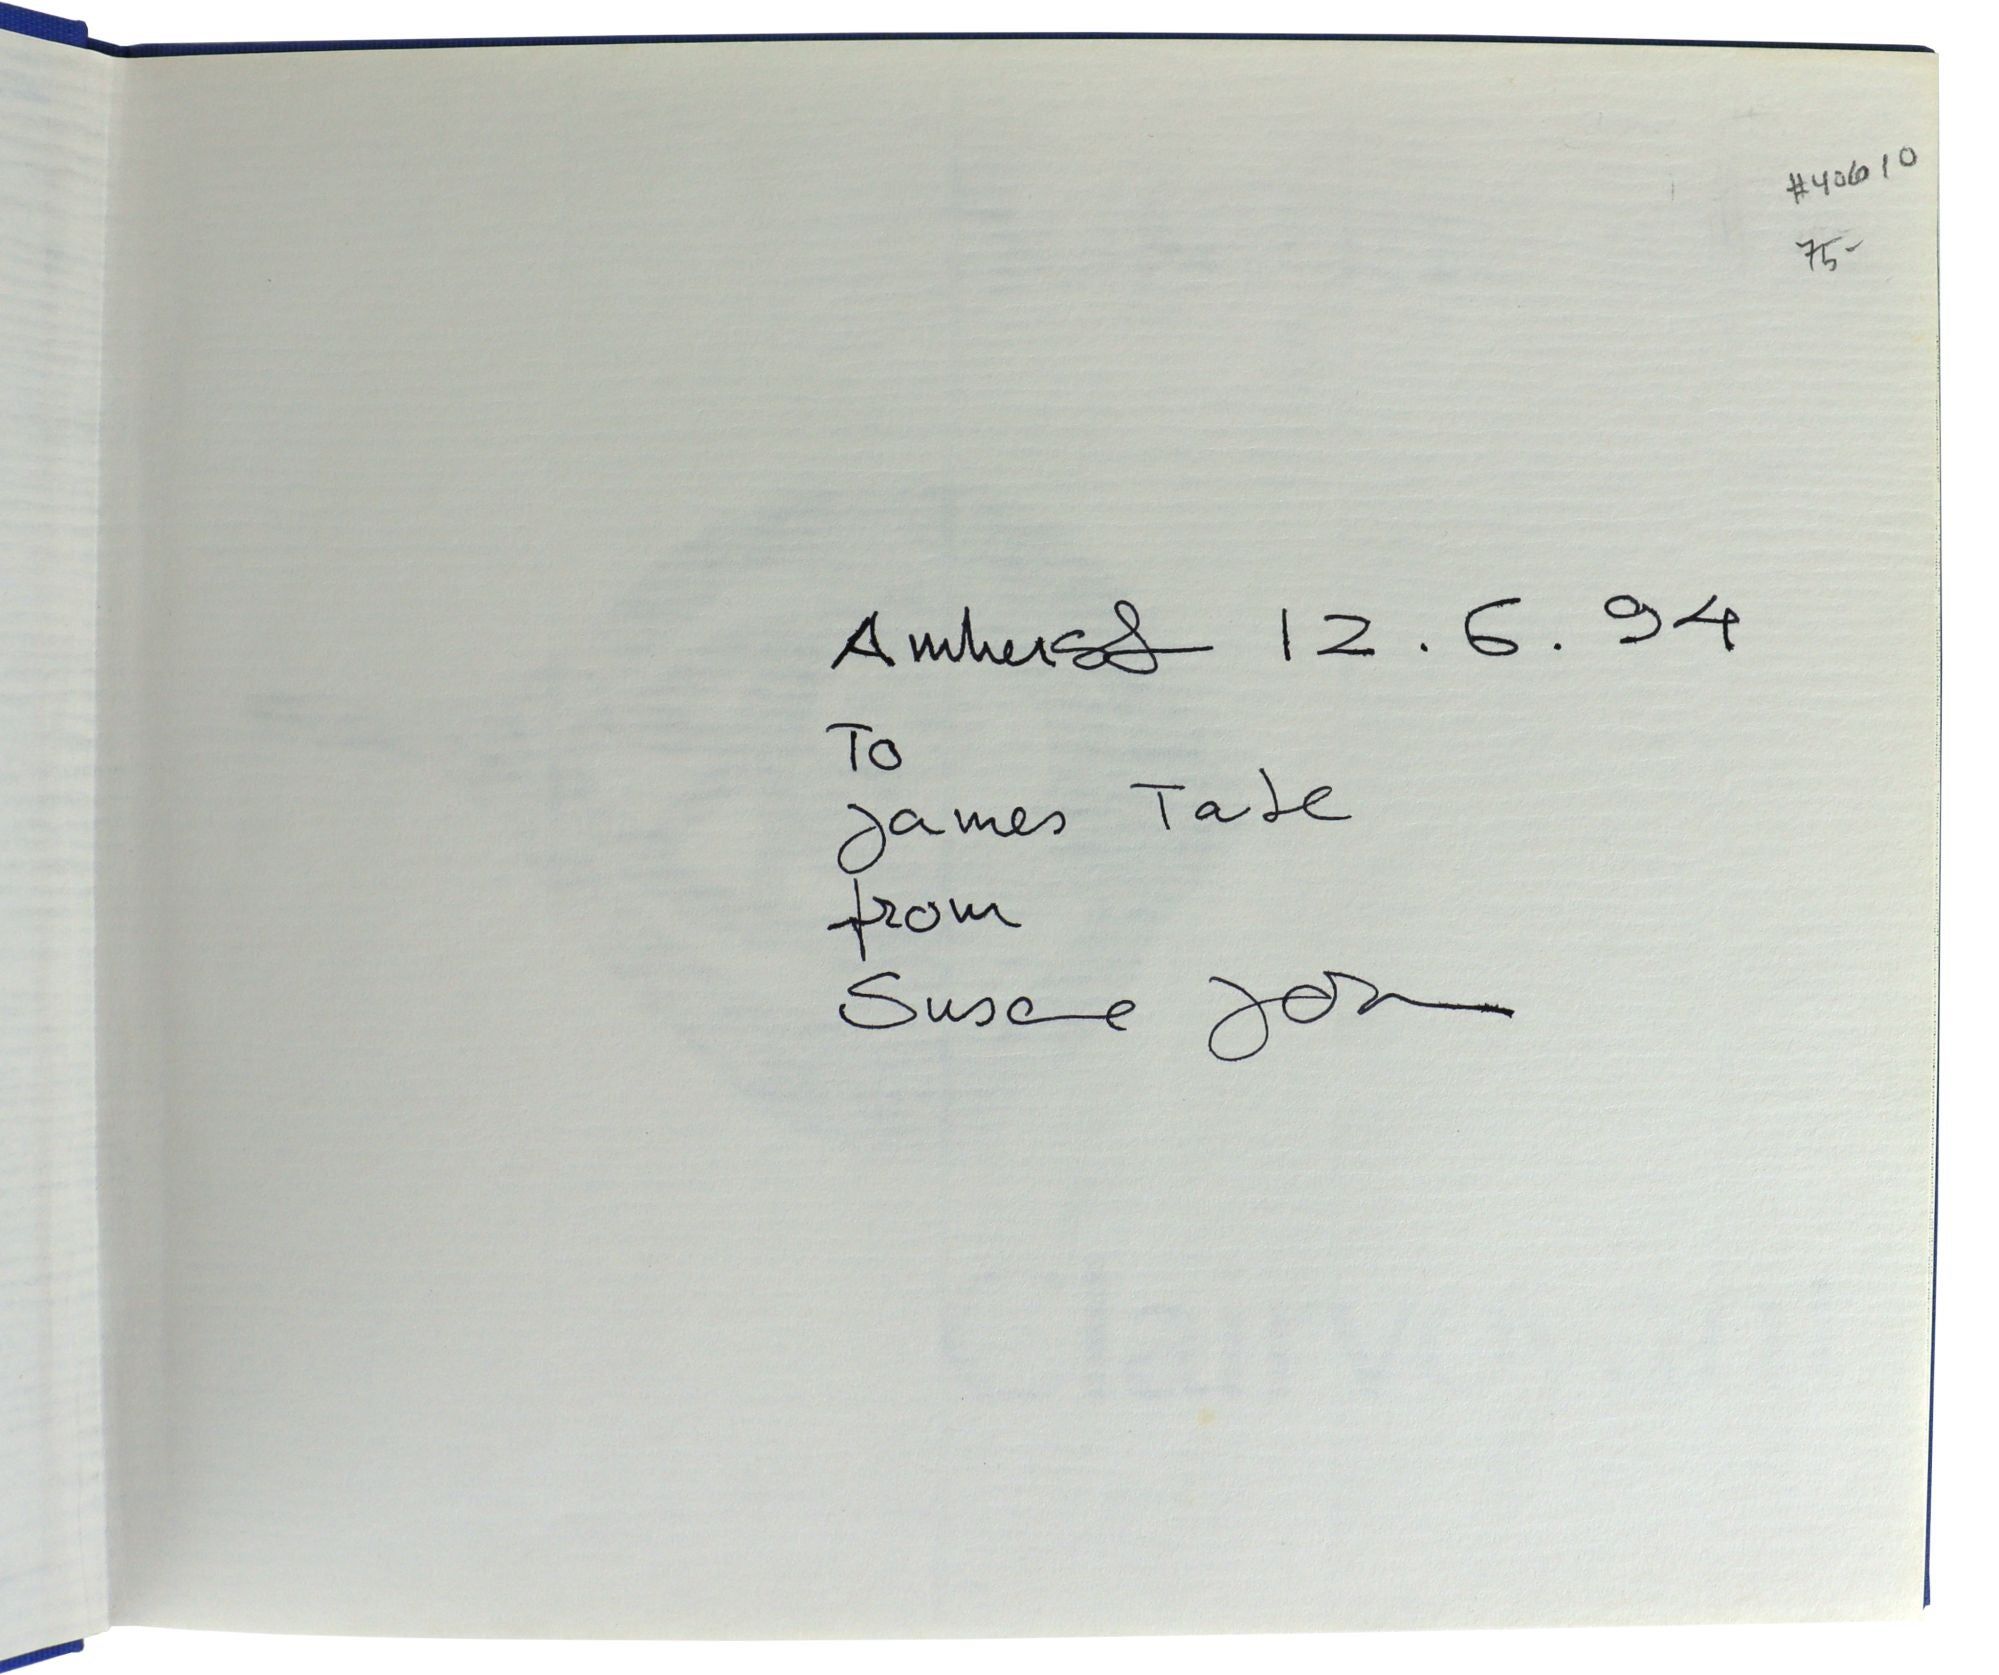 #40610
75-
Amherst 12.6.94
To
James Tate
from
Susanne